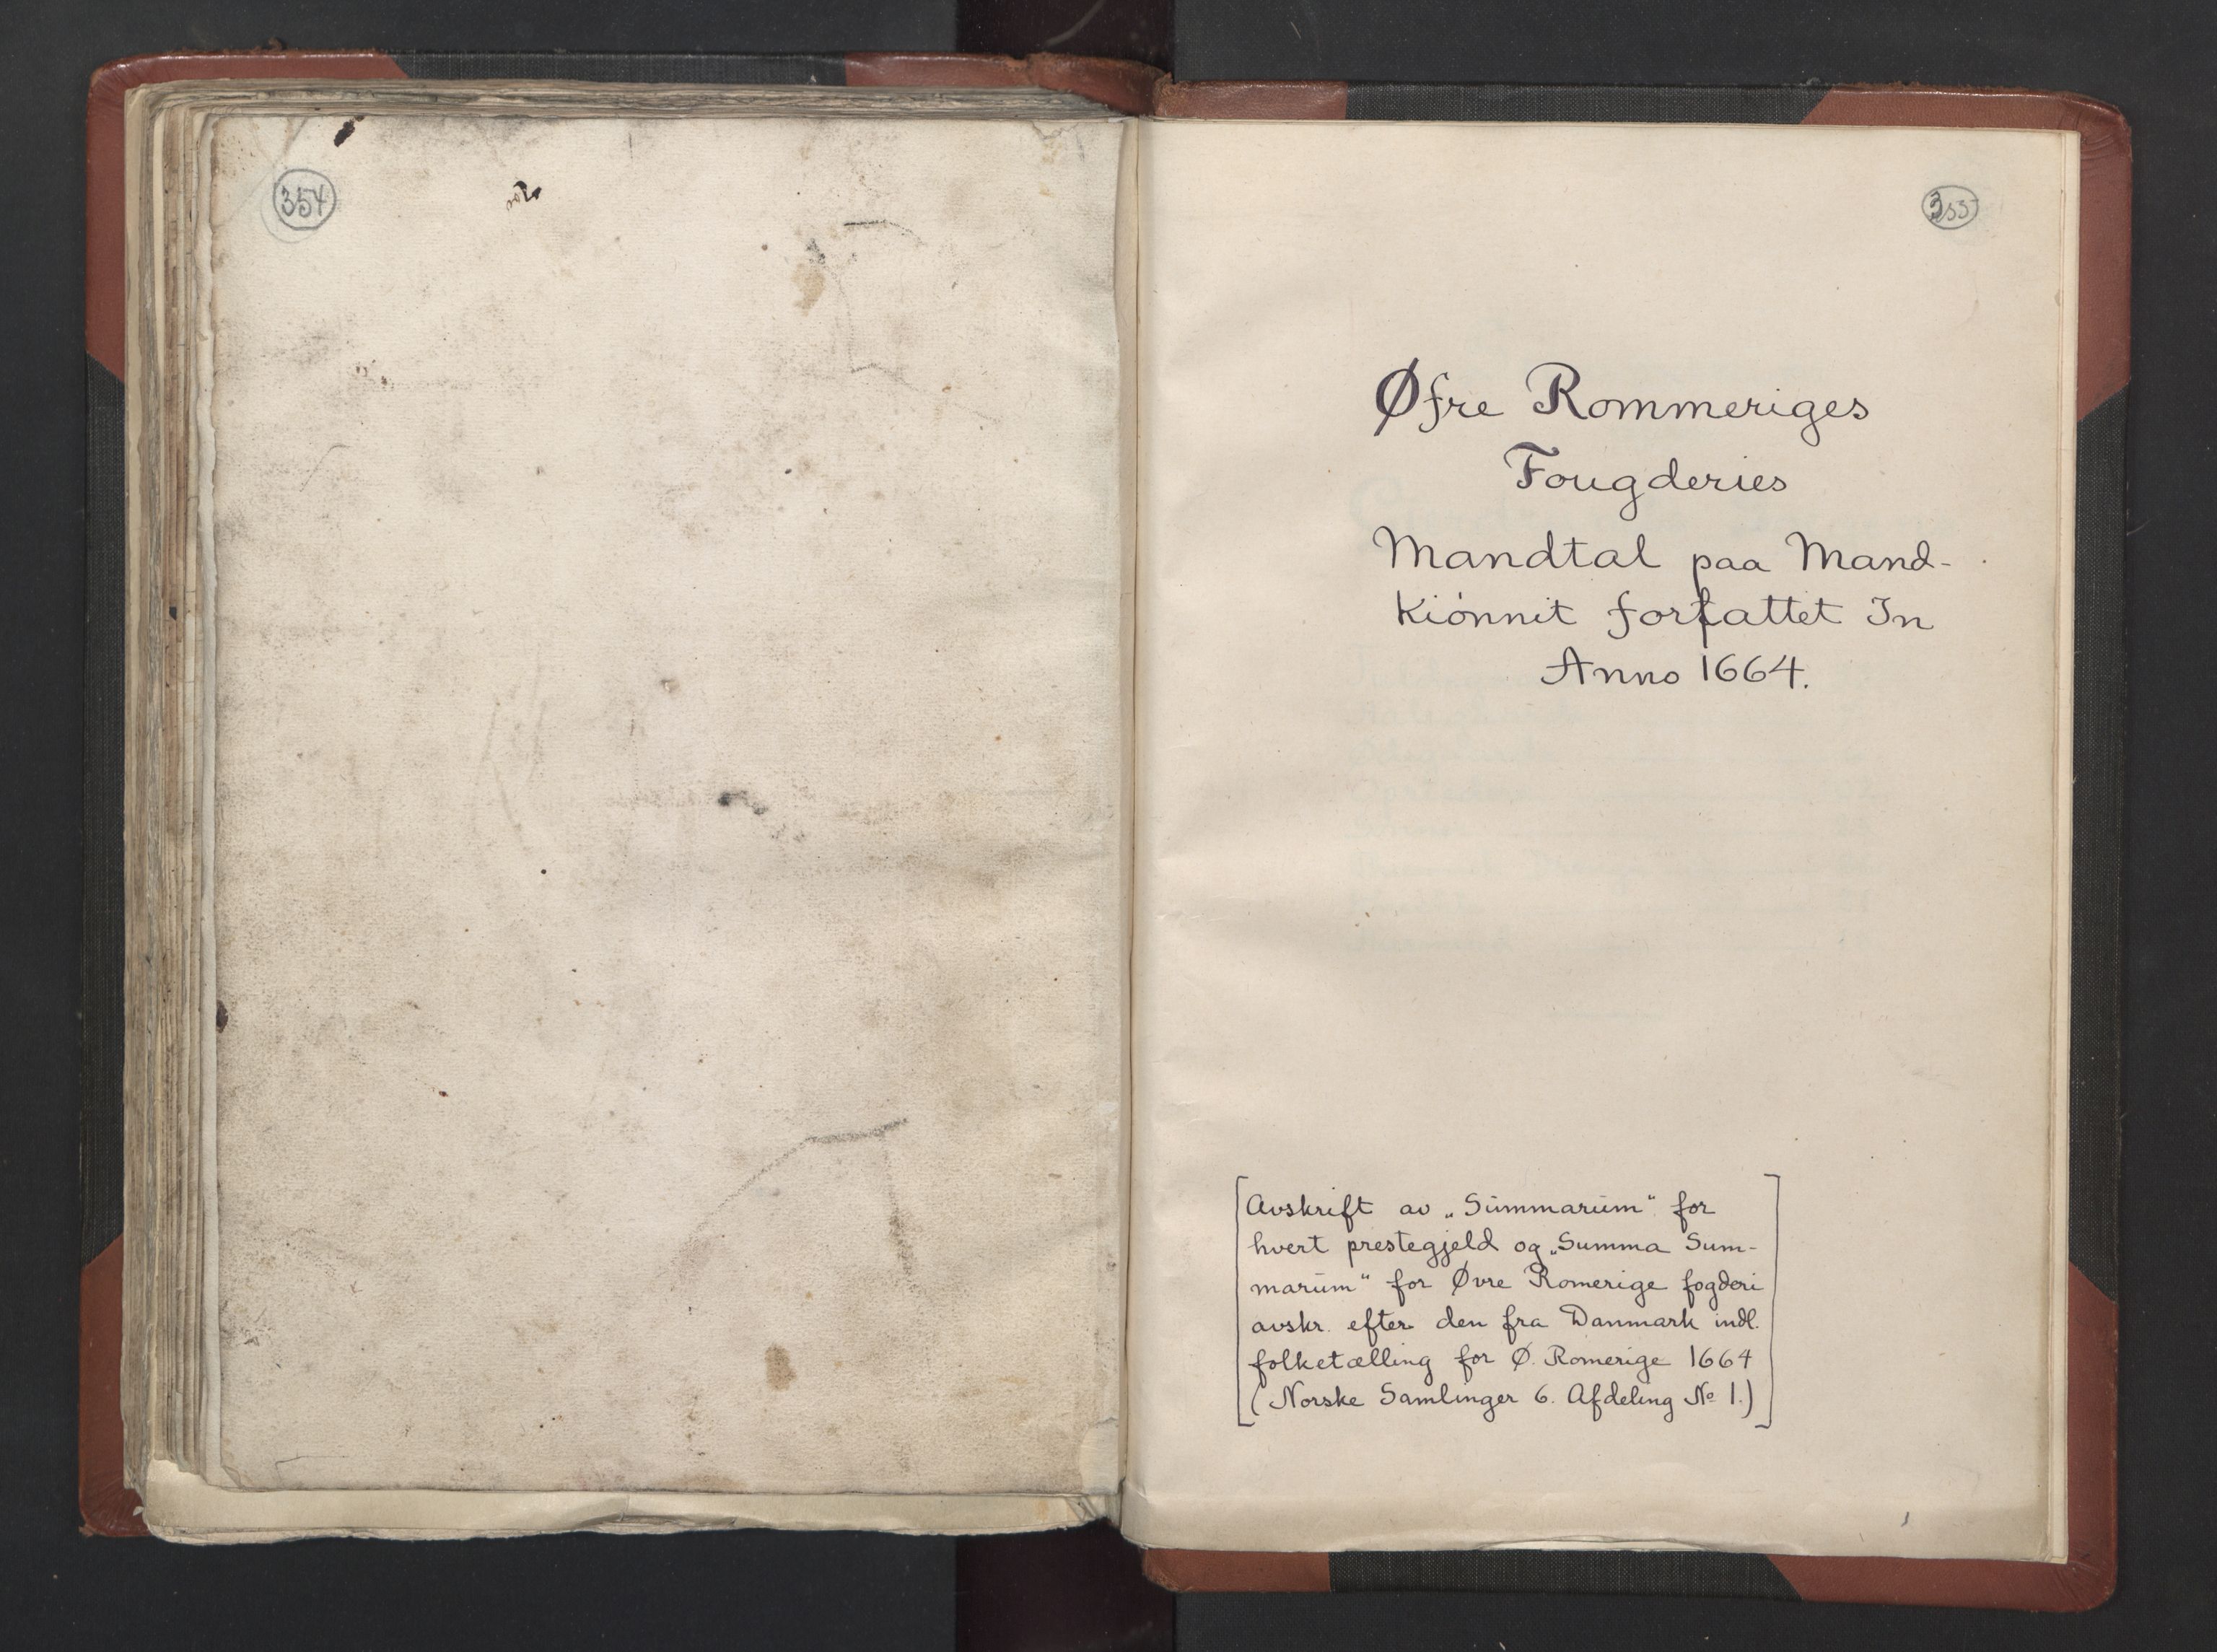 354
355
Øfre Rommeriges
Fougderies
Mandtal paa Mand-
Kiónnit forfattet In
Anno 1664.
Avskrift av „Súmmarúm“ for
hvert prestegjeld og „Summa Sum-
marúm“ for Øvre Romerige fogderi
avskr. efter den fra Danmark indl.
folketælling for Ø. Romerige 1664
(Norske Samlinger 6. Afdeling No 1.)